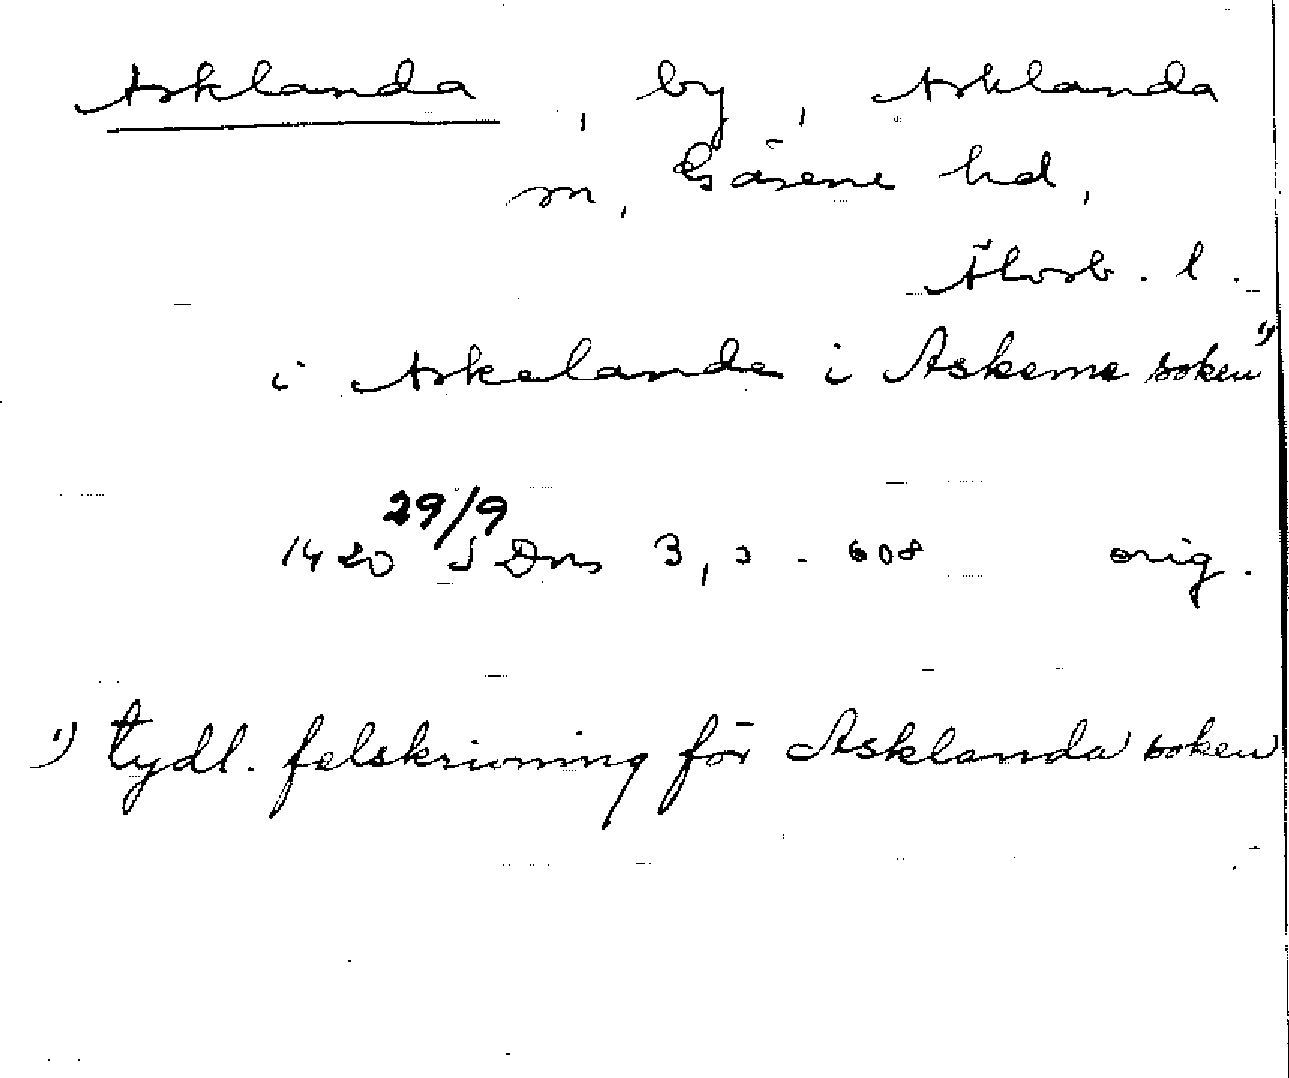 Asklanda, by, Asklanda
sn, Gäsene hd,
Älvsb. l.
i Askelanda i Askeme soken 1)
1420 29/9 SDns 3, s. 608 orig.
1) tydl. felskrivning för Asklanda soken